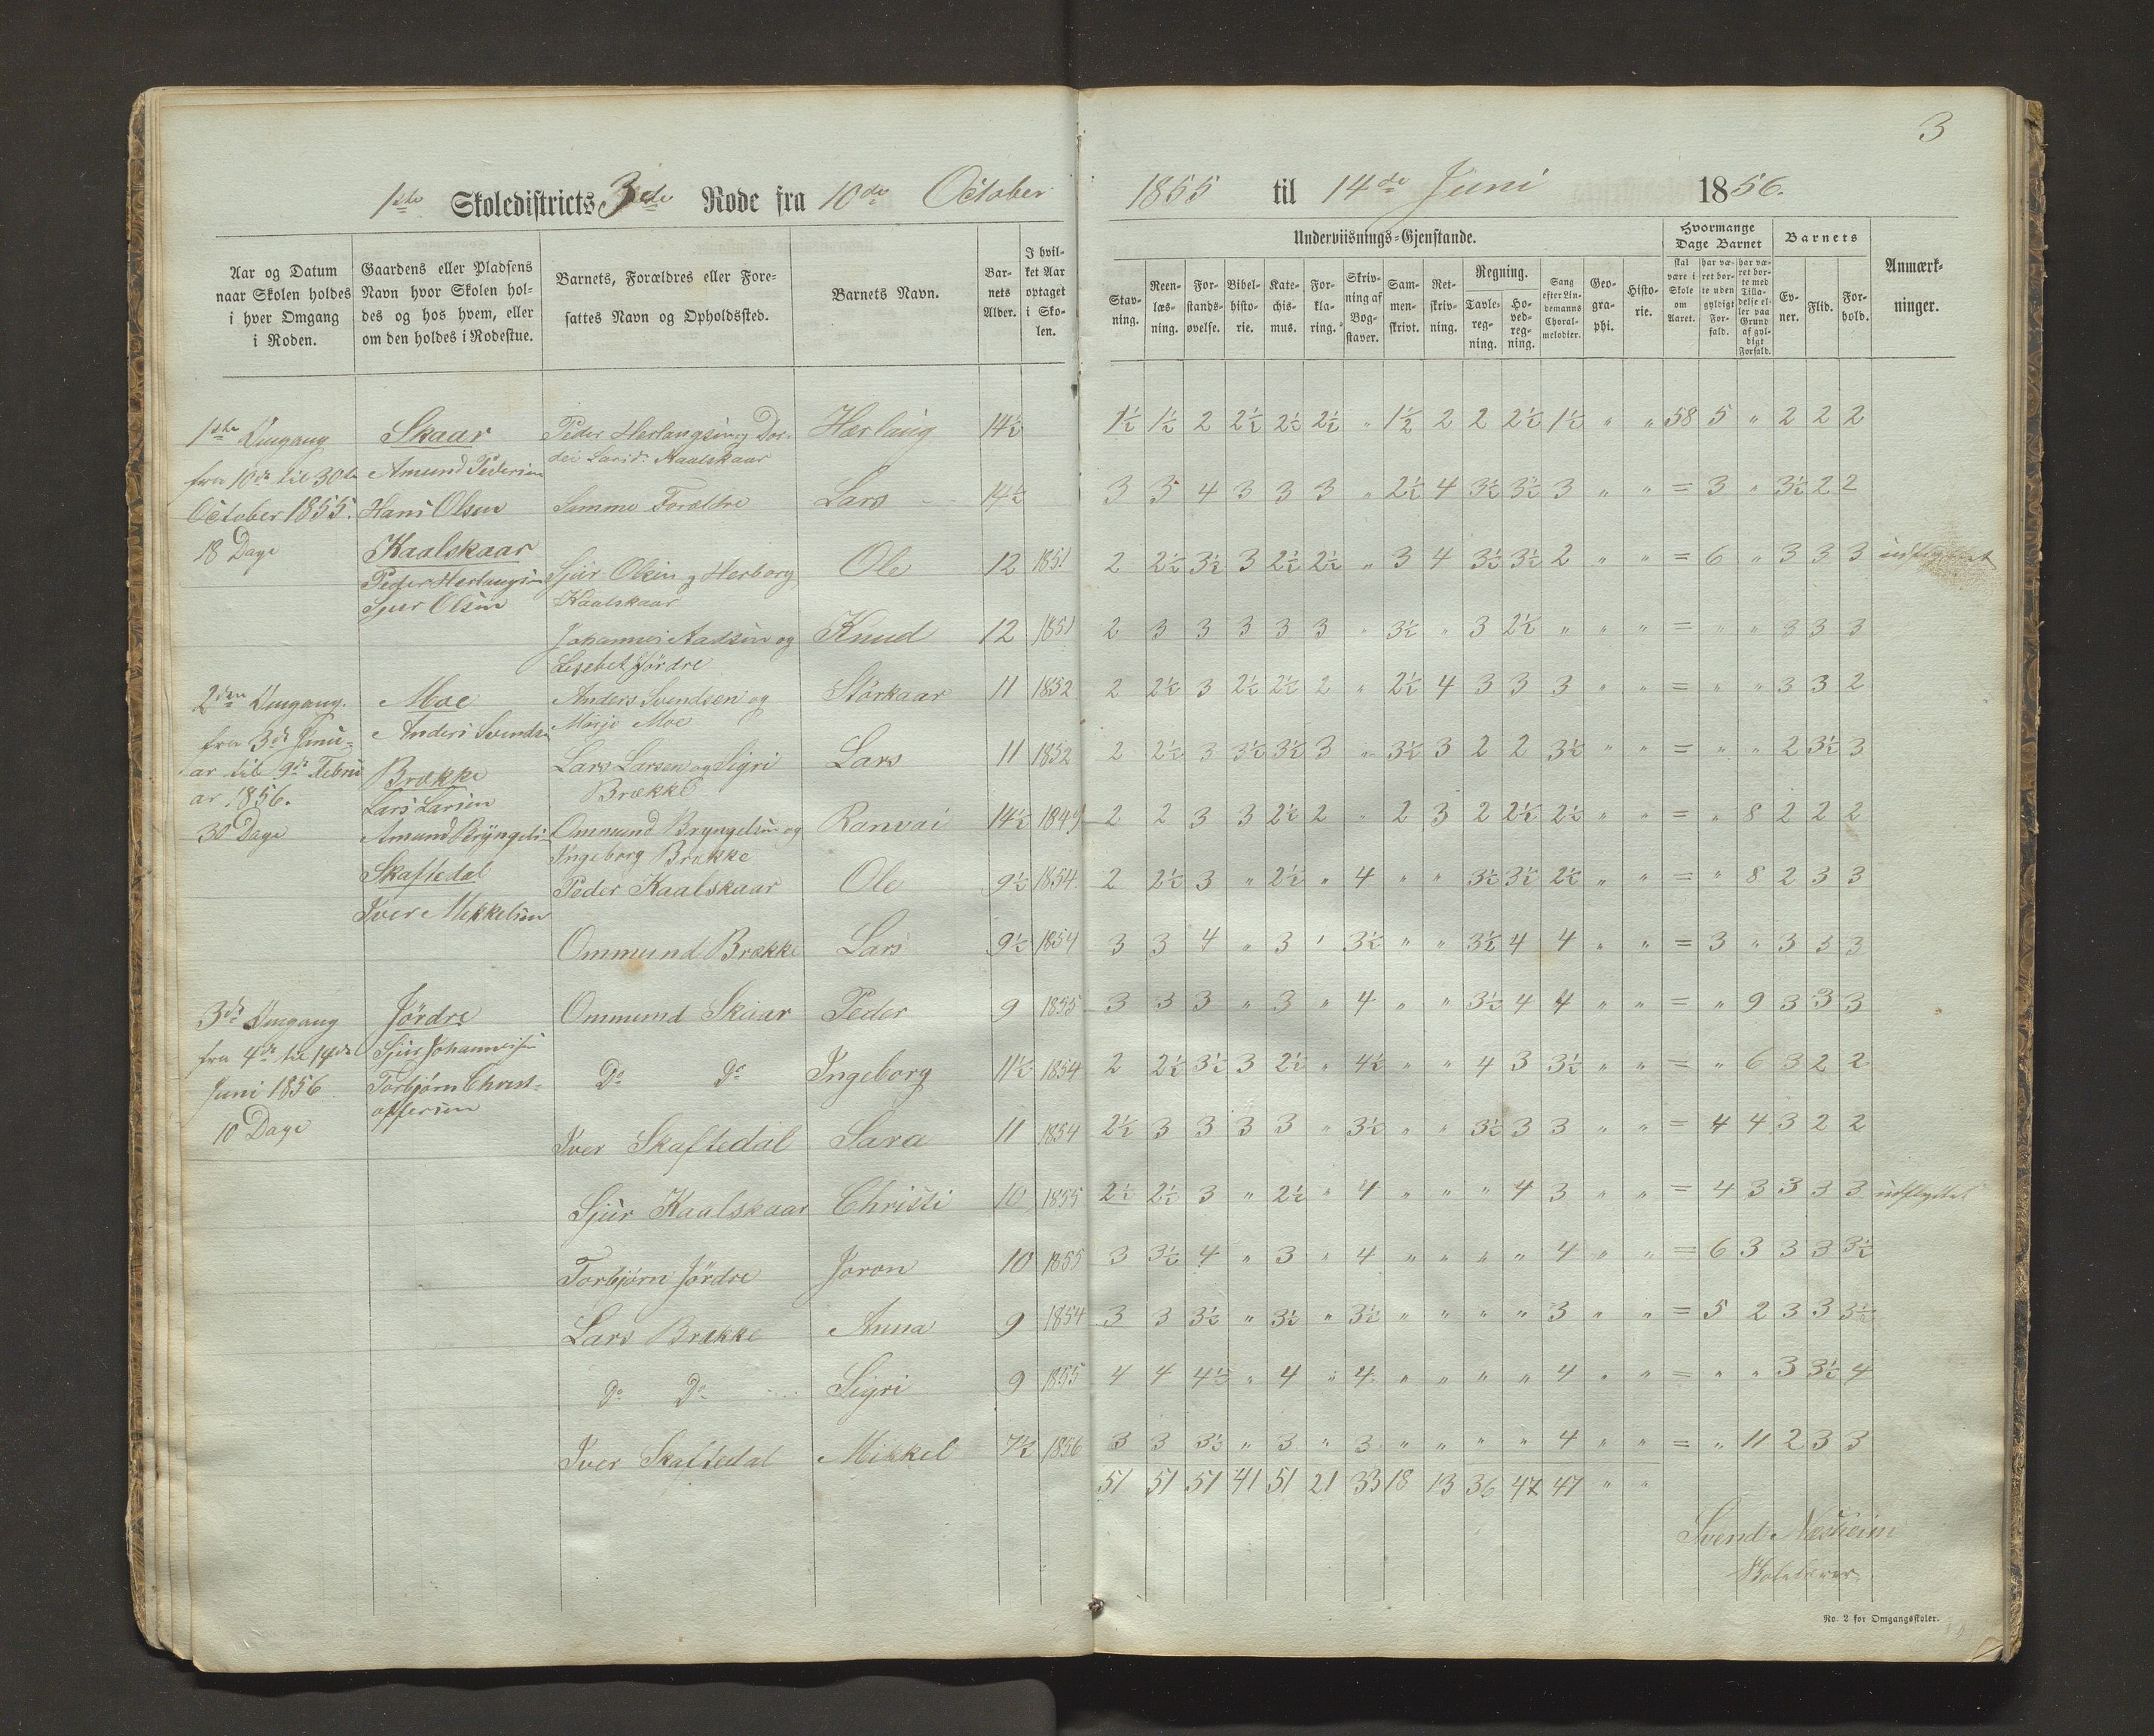 3
1ste Skoledistricts 3de Rode fra 10de October 1855 til 14de Juni 1856.
Aar og Datum naar Skolen holdes i hver Omgang i Roden.
Gaardens eller Pladsens Navn hvor Skolen holdes og hos hvem, eller om den holdes i Rodestue.
Barnets, Forældres eller Foresattes Navn og Opholdssted.
Barnets Navn.
Barnets Alder.
I hvilket Aar optaget i Skolen.
Underviisnings-Gjenstande.
Stavning.
Reenlæsning.
Forstandsøvelse.
Bibelhistorie.
Katechismus.
Forklaring.
Skrivning af Bogstaver.
Sammenskrivt.
Retskrivning.
Regning.
Tavleregning.
Hovedregning.
Sang efter Lindemanns Choralmelodier.
Geographi.
Historie.
Hvormange Dage Barnet
skal være i Skole om Aaret.
har været borte uden gyldigt Forfald.
har været borte med Tilladelse eller paa Grund af gyldigt Forfald.
Barnets
Evner.
Flid.
Forhold.
Anmærkninger.
1ste Omgang
fra 10de til 30te
October 1855.
18 Dage
Skaar
Amund Pedersen
Hans Olsen
Kaalskaar
Peder Herlaugsen
Sjur Olsen
2den Omgang.
fra 3de Janu-
ar til 9de Febru
ar 1856.
30 Dage
Moe
Anders Svends.
Brække
Lars Larsen
Amund Bryngels
Skaftedal
Iver Mikkelsen
3de Omgang
fra 4de til 14de
Juni 1856
10 Dage
Jördre
Sjur Johannesen
Torbjørn Christ-
offersen
Peder Herlaugsen og Dor-
dei Larsd. Kaalskaar Herlaug 14½ 1½ 1½ 2 2½ 2½ 2½ " 1½ 2 2 2½ 1½ " " 58 5 " 2 2 2
Samme Forældre Lars 14½ 3 3 4 3 3 3 " 2½ 4 3½ 3½ 3 " " = 3 " 3½ 2 2
Sjur Olsen og Herborg
Kaalskaar Ole 12 1851 2 2½ 3½ 3 2½ 2½ " 3 4 3½ 3½ 2 " " = 6 " 3 3 3 udflyttet
Johannes Aadsen og
Lisebet Jördre Knud 12 1851 2 3 3 3 3 3 " 3½ " 3 2½ " " " = " " 3 3 3
Anders Svendsen og
Marje Moe Störkaar 11 1852 2 2½ 3 2½ 2½ 2 " 2½ 4 3 3 3 " " = " " 3 3 2
Lars Larsen og Sigri
Brække Lars 11 1852 2 2½ 3 3½ 3½ 3 " 3½ 3 2 2 3½ " " = " " 2 3½ 3
Ommund Bryngelsen og
Ingeborg Brække Ranvai 14½ 1849 2 2 3 3 2½ 2 " 2 3 2 2½ 2½ " " = " 8 2 2 2
Peder Kaalskaar Ole 9½ 1854 2 2½ 3 " 2½ " 4 " " 3½ 3½ 2½ " " = " 8 2 3 3
Ommund Brække Lars 9½ 1854 3 3 4 " 3 " 3½ " " 3½ 4 4 " " = 3 " 3 3 3
Ommund Skaar Peder 9 1855 3 3 3 " 3 " 4 " " 3½ 4 4 " " = " 9 3 3 3
Do Do Ingeborg 11½ 1854 2 2½ 3½ 3 2½ " 4½ " " 4 3 3½ " " = " 6 3 2 2
Iver Skaftedal Sara 11 1854 2½ 3 3 3 3 " 3½ " " 3½ 3 3 " " = 4 4 3 2 2
Sjur Kaalskaar Christi 10 1855 2½ 2½ 3 " 2½ " 4 " " " 4 3 " " = 4 3 3 3 3 udflyttet
Torbjørn Jördre Joron 10 1855 3 3½ 4 " 3 " 4 " " " " 4 " " = 6 3 3 3 3½
Lars Brække Anna 9 1854 3 3 3½ " 3½ " 3½ " " " " 3 " " = 5 2 3 3 3½
Do Do Sigri 9 1855 4 4 4½ " 4 " 4 " " " " 4 " " = " " 3 3½ 4
Iver Skaftedal Mikkel 7½ 1856 3 3 3½ " 3 " 3 " " " " 4 " " = " 11 2 3 3
51 51 51 41 51 21 33 18 13 36 47 47 " "
Svend Næsheim
Skolelærer
No. 2 for Omgangsskoler.